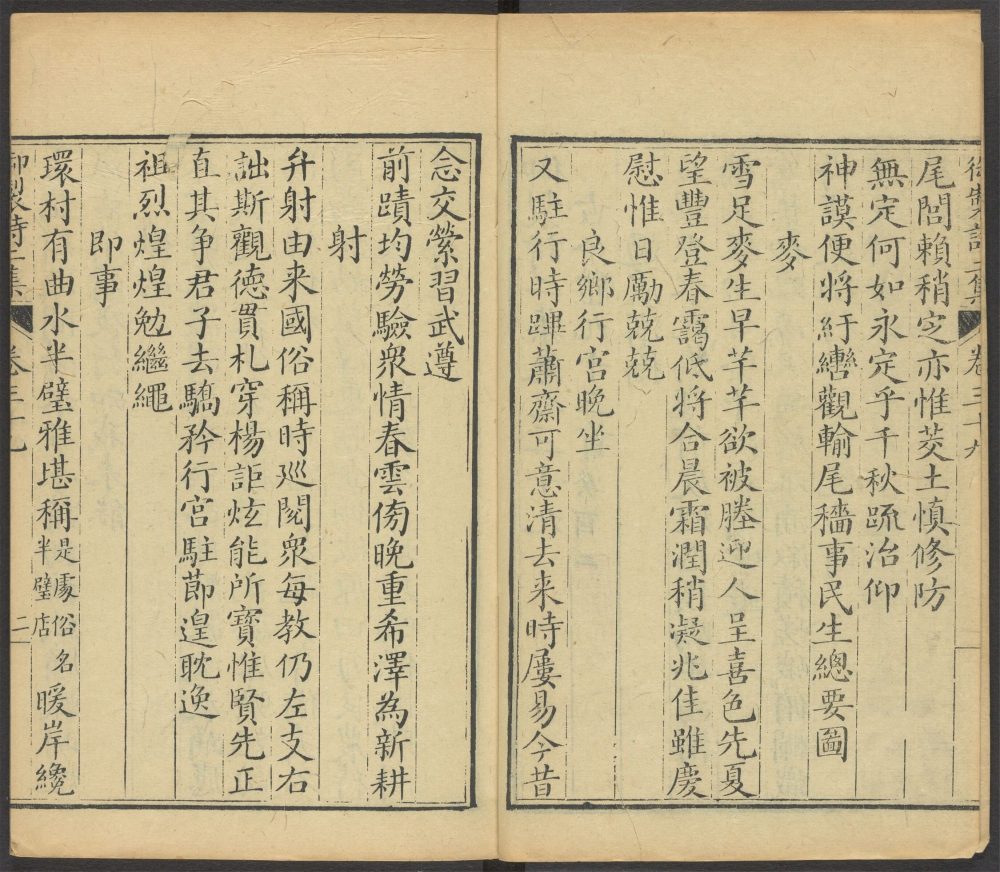 御製詩二集 卷三十九
尾閭賴稍定亦惟茭土慎修防
無定何如永定乎千秋疏治仰
神謨便將紆轡觀輸尾穡事民生總要圖
麥
雪足麥生早芊芊欲被塍迎人呈喜色先夏
望豐登春靄低將合晨霜潤稍凝兆佳雖慶
慰惟日勵兢兢
良鄉行宮晚坐
又駐行時蹕蕭齋可意清去来時屢易今昔
念交縈習武遵
前蹟均勞驗衆情春雲傍晚重希澤為新耕
射
弁射由来國俗稱時巡閱衆每教仍左支右
詘斯觀德貫札穿楊詎炫能所寶惟賢先正
直其争君子去驕矜行宮駐節遑耽逸
祖烈煌煌勉繼繩
即事
環村有曲水半璧雅堪稱是處俗名半璧店暖岸纔
御製詩二集 卷三十九 二